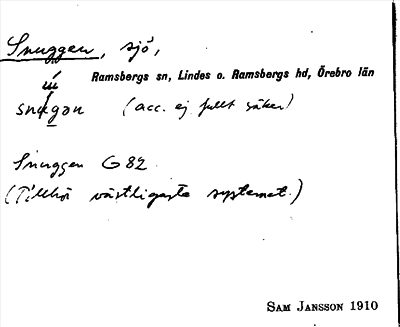 Snuggen, sjö,
Ramsbergs sn, Lindes o. Ramsbergs hd, Örebro län
snugən (acc. ej fullt säker)
Snuggen G 82
(Tillhör västligaste systemet.)
SAM JANSSON 1910